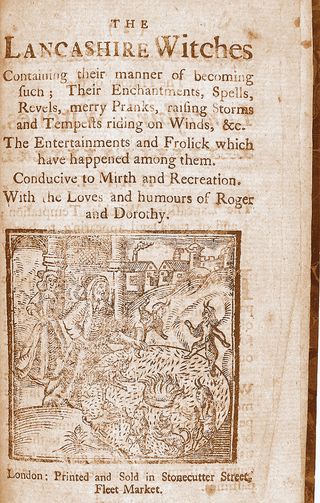 THE
LANCASHIRE Witches
Containing their manner of becoming
such; Their Enchantments, Spells,
Revels, merry Pranks, raiſing Storms
and Tempeſts riding on Winds, &c.
The Entertainments and Frolick which
have happened among them.
Conducive to Mirth and Recreation.
With the Loves and humours of Roger
and Dorothy.
London: Printed and Sold in Stonecutter Street,
Fleet Market.